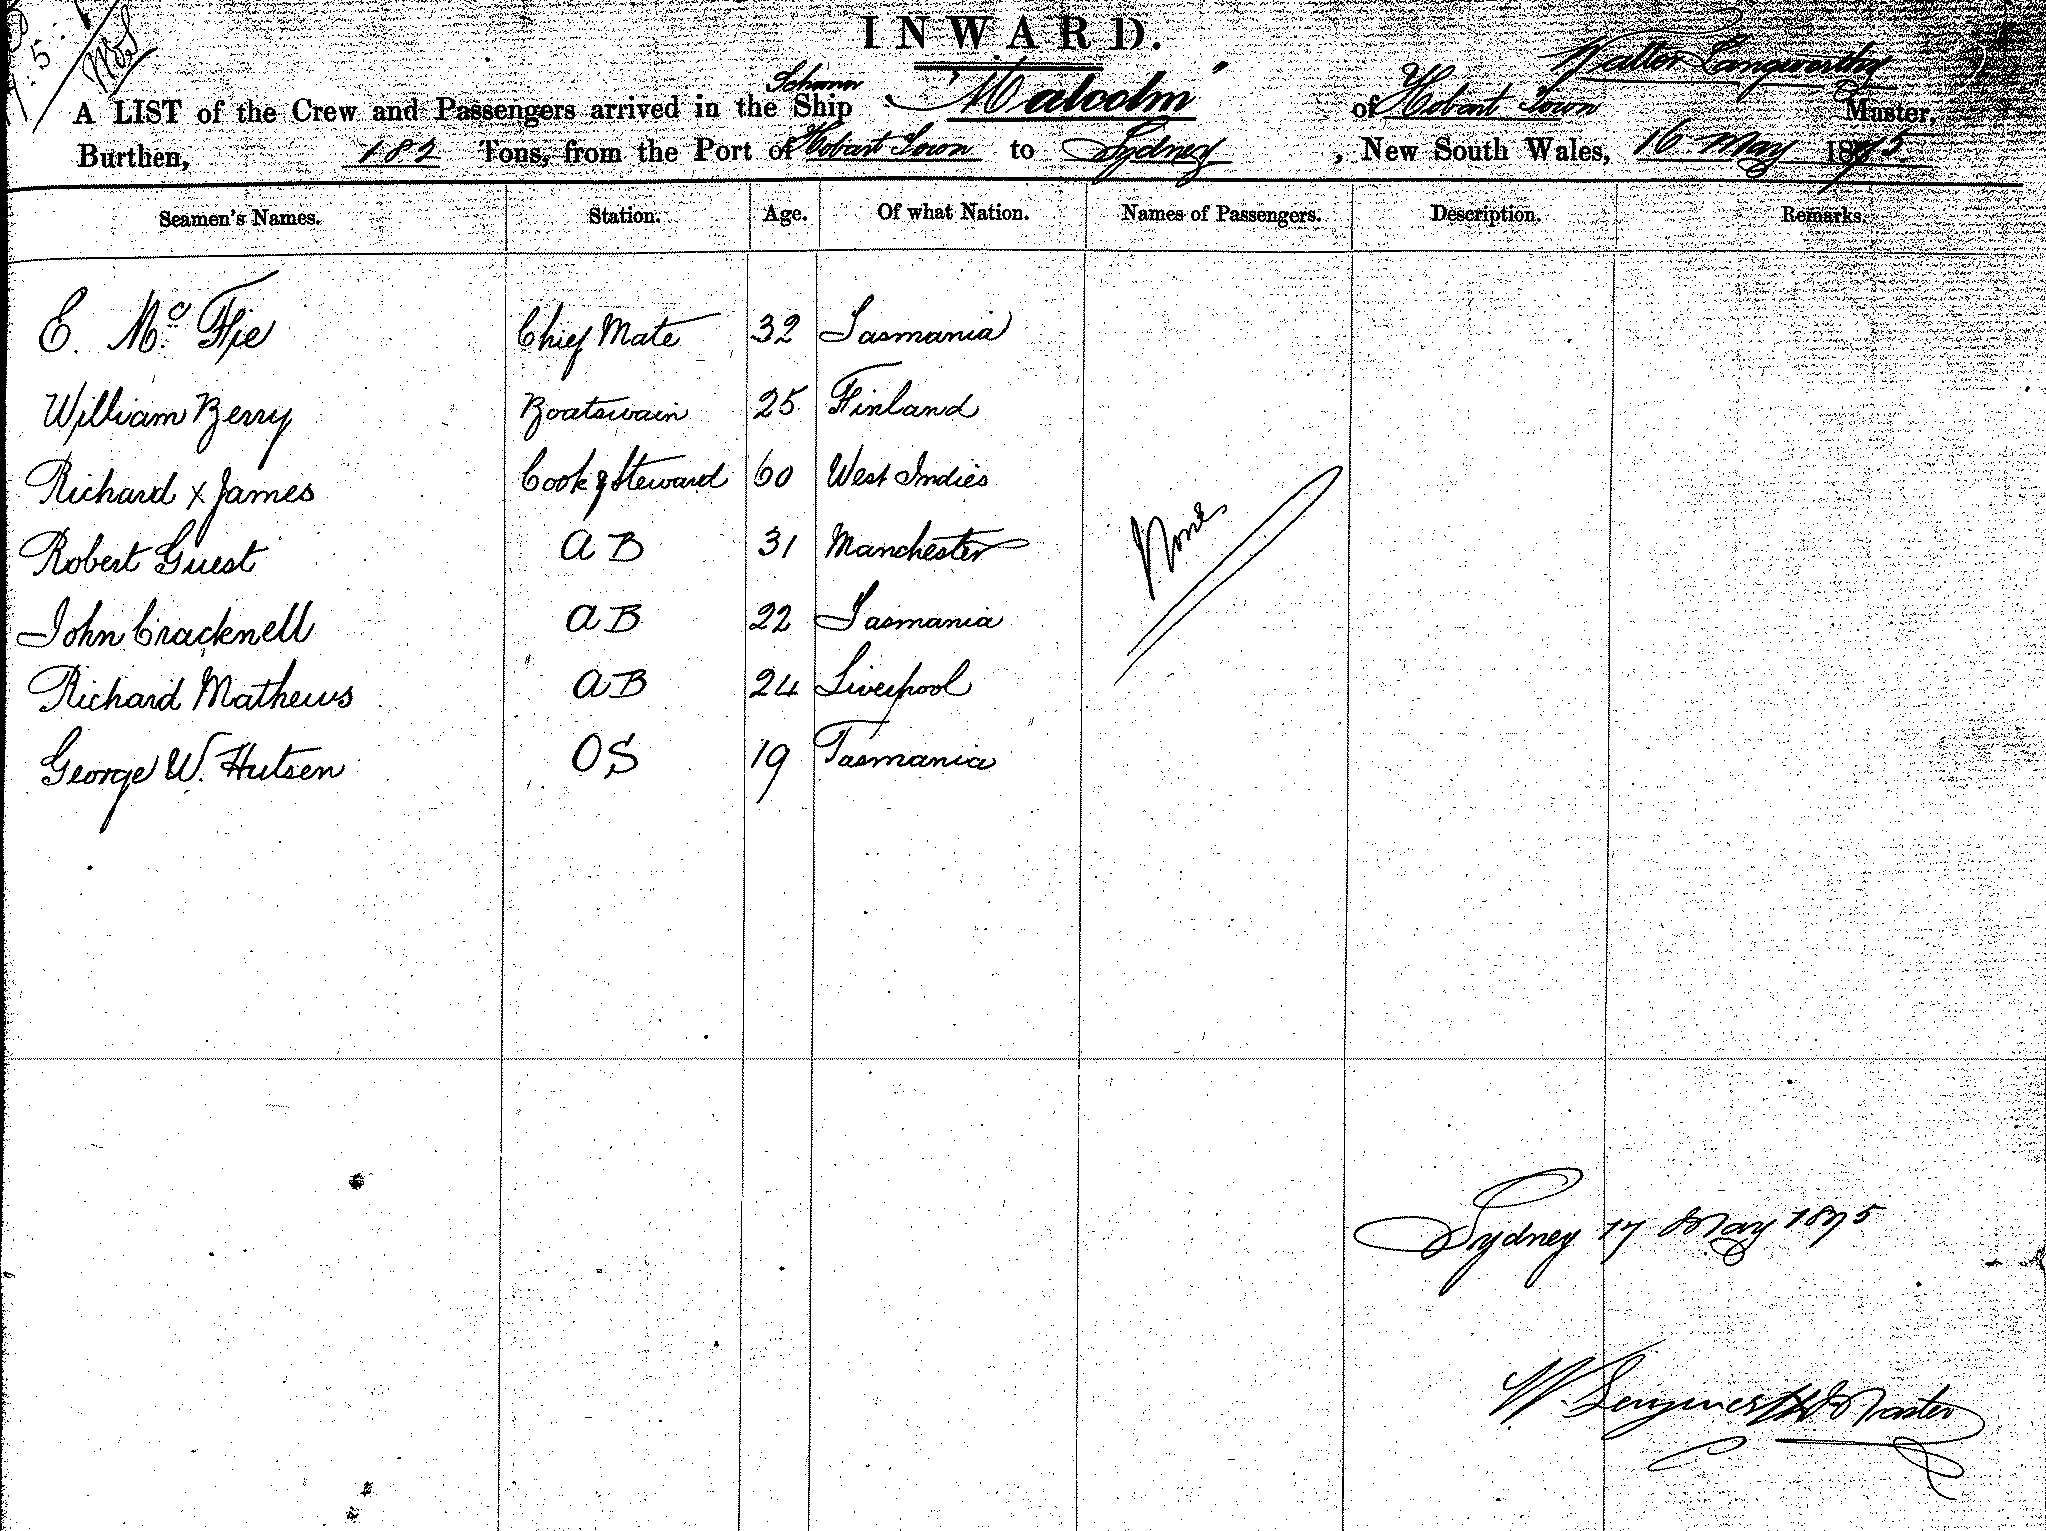 INWARD.
A LIST of the Crew and Passengers arrived in the Ship Schooner "Malcolm" of Hobart Town Walter Langworthy Master,
Burthen, 182 Tons, from the Port of Hobart Town to Sydney, New South Wales, 16 May 1875.
Seamen's Names. Station. Age. Of what Nation. Names of Passengers. Description. Remarks.
E. Mc Fie Chief Mate 32 Tasmania
William Berry Boatswain 25 Finland
Richard x James Cook & Steward 60 West Indies
Robert Guest AB 31 Manchester None
John Cracknell AB 22 Tasmania
Richard Mathews AB 24 Liverpool
George W. Hutsen OS 19 Tasmania
Sydney 17 May 1875
W. Langworthy Master